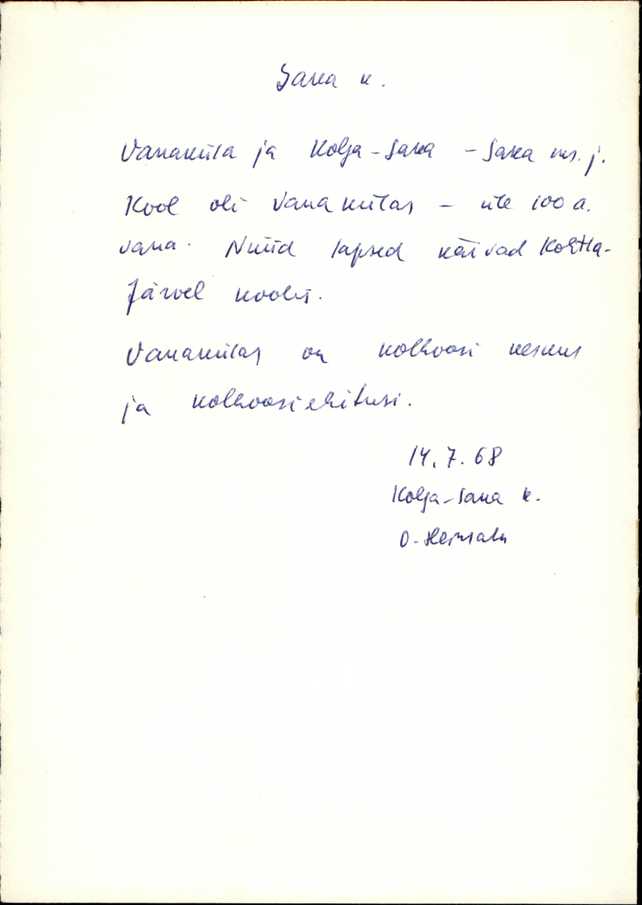 Saka k.
Vanaküla ja Kolja-Saka - Saka ms. j.
Kool oli Vanakülas - üle 100 a.
vana. Nüüd lapsed käivad Kohtla-
Järvel koolis.
Vanakülas on kolhoosi keskus
ja kolhoosiehitusi.
14.7.68
Kolja-Saka k.
O. Heinsalu